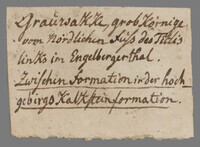 Grauwakke, grobkörnige
vom nördlichen Fuss des Titlis
links im Engelbergerthal.
Zwischen Formation in der hoch-
gebirgs Kalksteinformation.